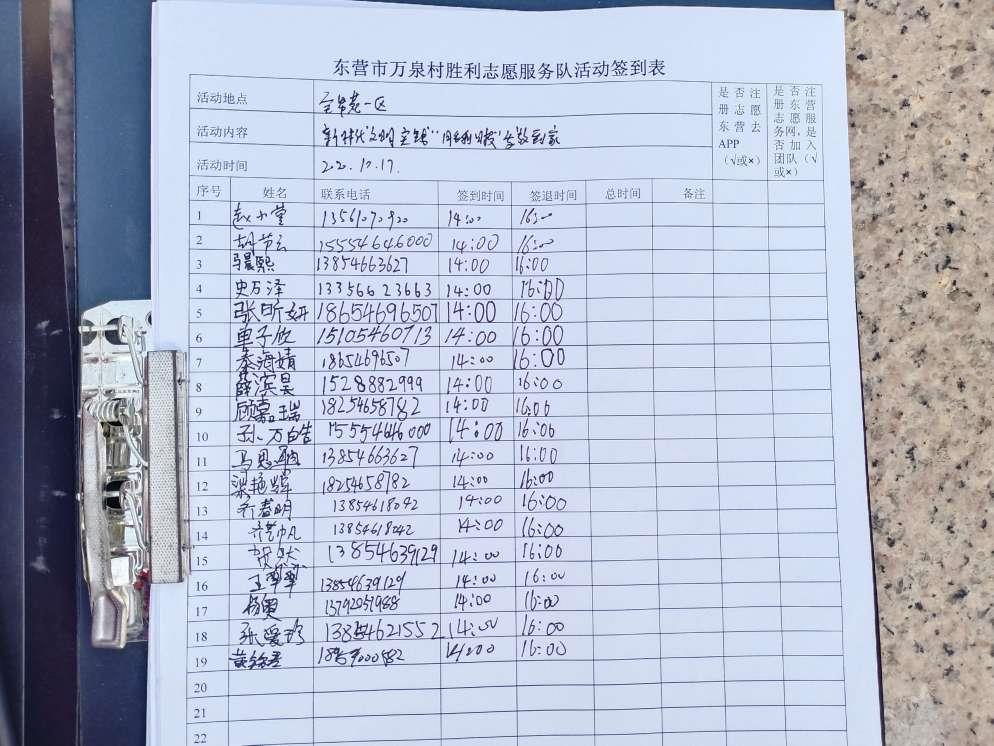 东营市万泉村胜利志愿服务队活动签到表
活动地点 一区
活动内容 新时代文明实践
活动时间 22.12.17.
是否注册志愿东营去APP（√或×）
是否注册东营志愿服务网，是否加入团队（√或×）
序号 姓名 联系电话 签到时间 签退时间 总时间 备注
1 赵小莹 14:00 16:00
2 胡节云 15554646000 14:00 16:00
3 马晨熙 13854663627 14:00 16:00
4 史万泽 13356623663 14:00 16:00
5 张昕妍 18654696507 14:00 16:00
6 单子欣 15105460713 14:00 16:00
7 秦海婧 18654696507 14:00 16:00
8 薛滨昊 1528882999 14:00 16:00
9 顾嘉瑞 18254658782 14:00 16:00
10 孙万皓 15554646000 14:00 16:00
11 马思 13854663627 14:00 16:00
12 梁艳辉 18254658782 14:00 16:00
13 齐春明 13854618042 14:00 16:00
14 13854618042 14:00 16:00
15 13854639129 14:00 16:00
16 王翠翠 13854639129 14:00 16:00
17 13792051988 14:00 16:00
18 张爱玲 13854621552 14:00 16:00
19 14:00 16:00
20
21
22